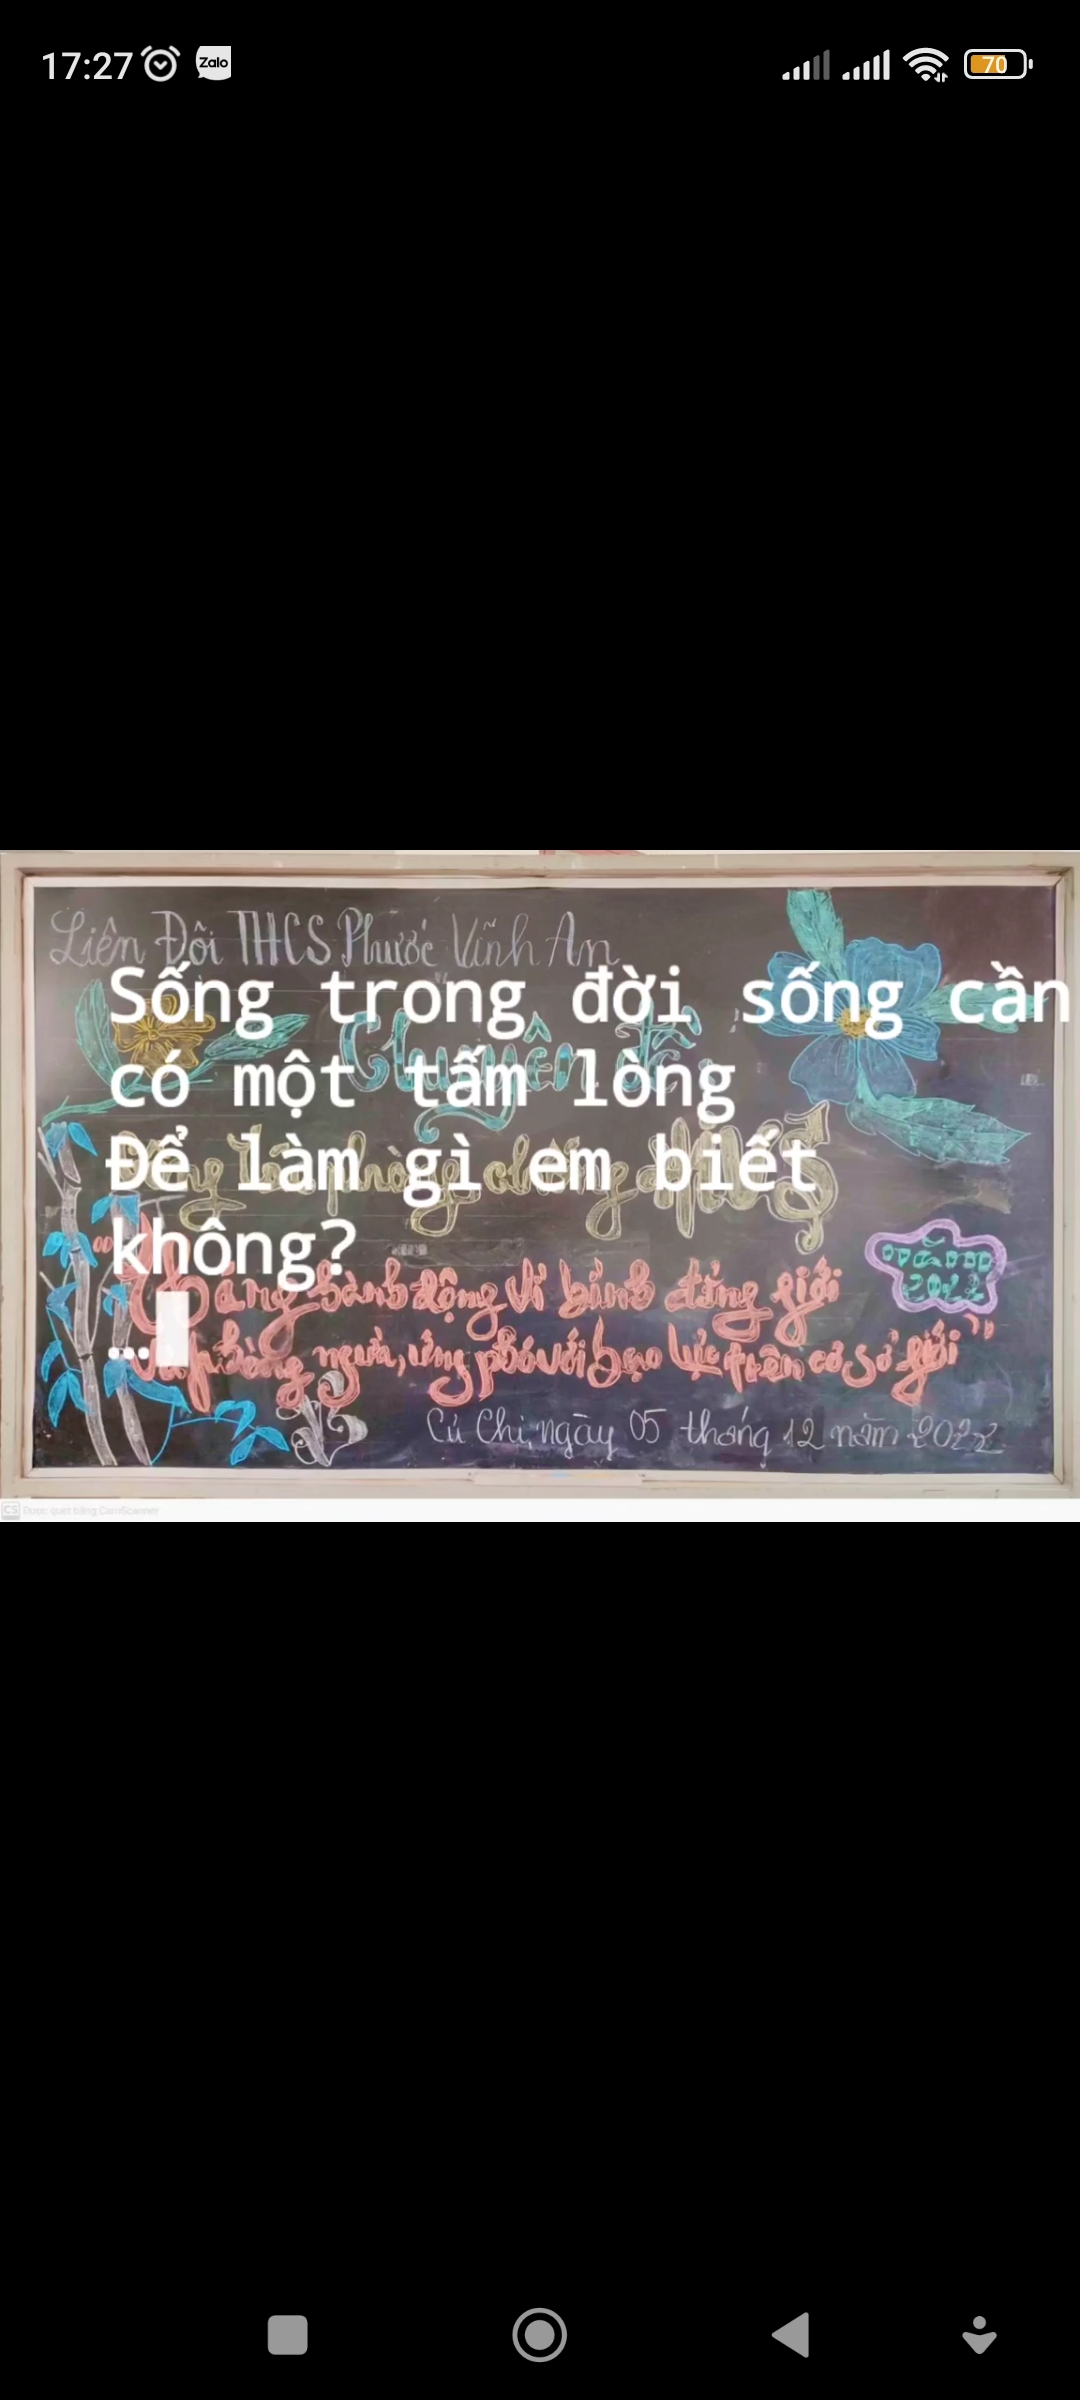 17:27 Zalo 70
Liên Đội THCS Phước Vĩnh An
Sống trong đời sống cần
có một tấm lòng
Chuyên đề
Để làm gì em biết
phòng chống
không?
2022
hành động vì bình đẳng giới
...
phòng ngừa, ứng phó với bạo lực trên cơ sở giới"
Củ Chi, ngày 05 tháng 12 năm 2022
CS Được quét bằng CamScanner